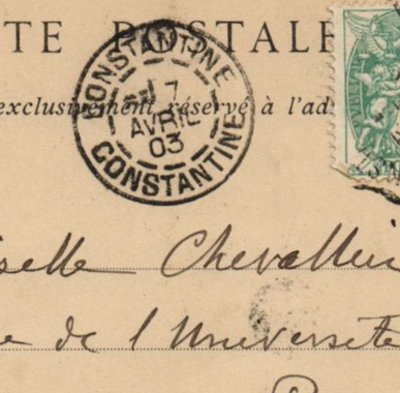 TE POSTALE
CONSTANTINE
7
AVRIL
03
CONSTANTINE
exclusivement réservé à l'ad
selle Chevallier
e de l'Universite